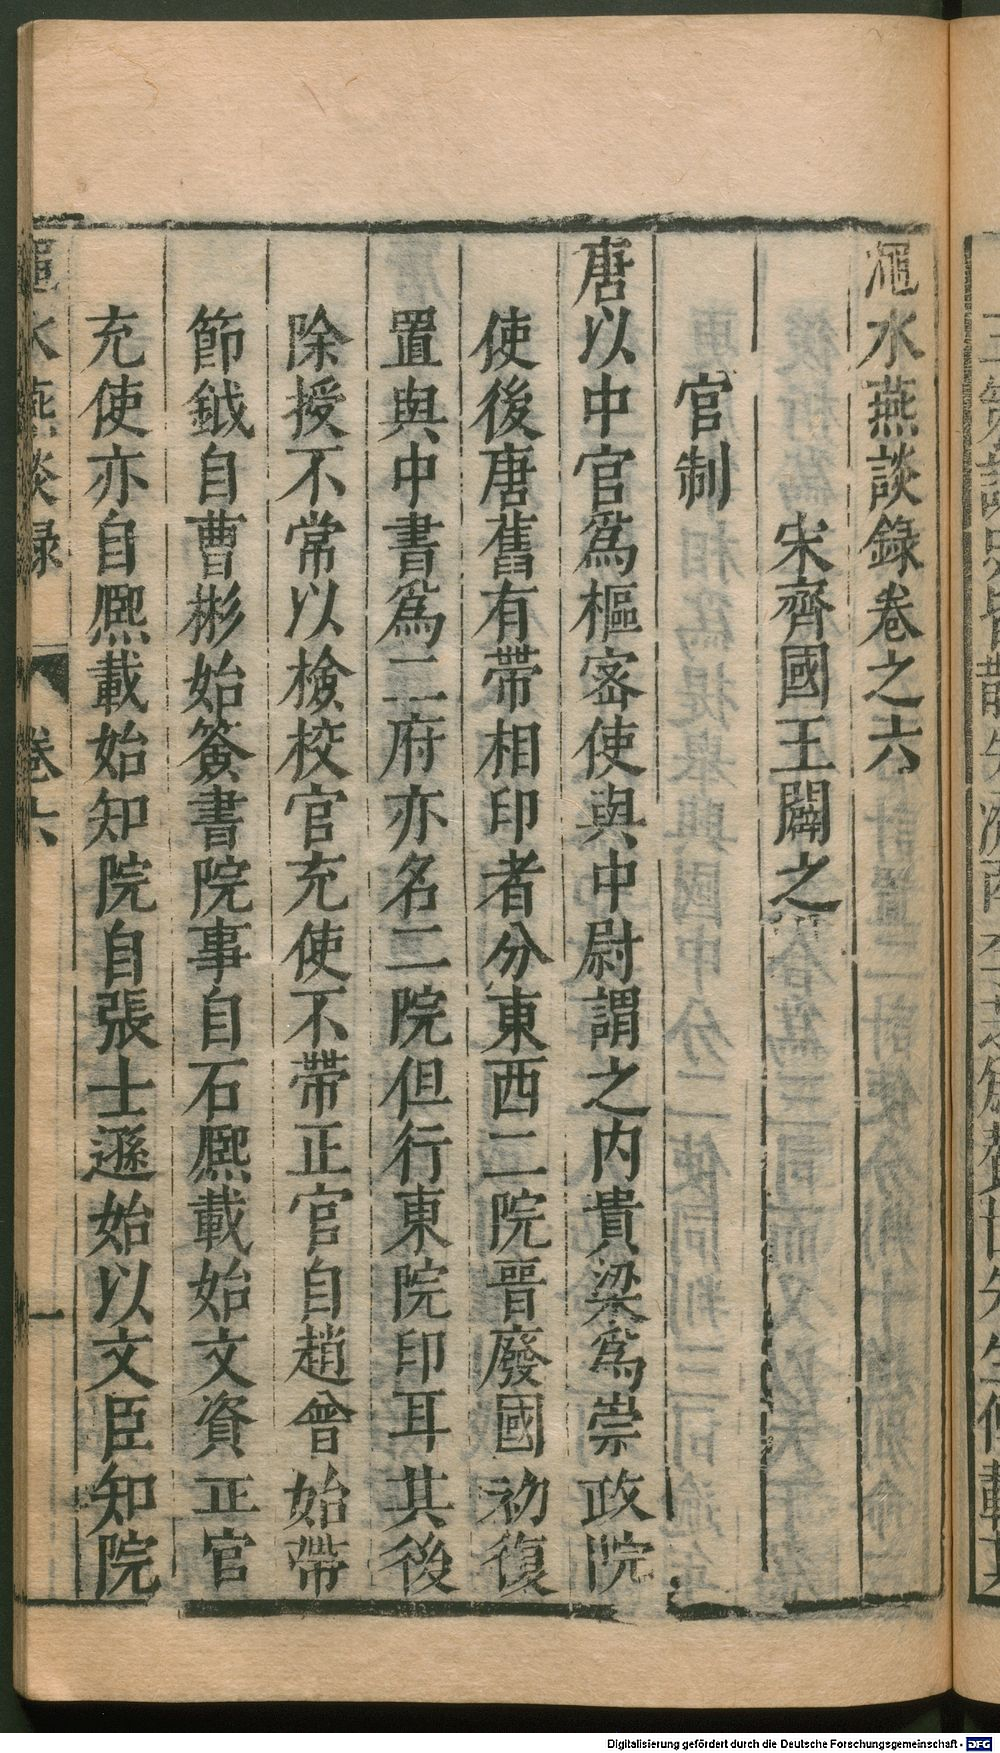 澠水燕談錄卷之六
宋齊國王闢之
官制
唐以中官爲樞密使與中尉謂之内貴梁爲崇政院
使後唐舊有帶相印者分東西二院晉廢國初復
置與中書爲二府亦名二院但行東院印耳其後
除授不常以檢校官充使不帶正官自趙曾始帶
節鉞自曹彬始簽書院事自石熙載始文資正官
充使亦自熙載始知院自張士遜始以文臣知院
澠水燕談録
卷六
一
Digitalisierung gefördert durch die Deutsche Forschungsgemeinschaft - DFG